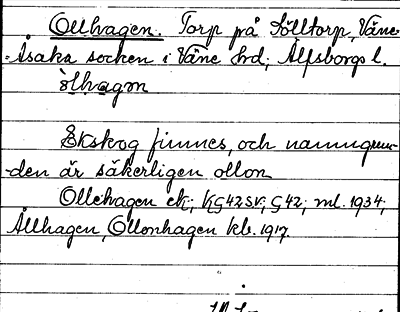 Ollhagen. Torp på Sölltorp, Väne-
Åsaka socken i Väne hd, Älfsborgs l.
òlhagɷn
Ekskog finnes, och namngrun-
den är säkerligen ollon
Ollehagen ek; KG42SV; G42; ml. 1934;
Ållhagen, Ollonhagen kb. 1917.